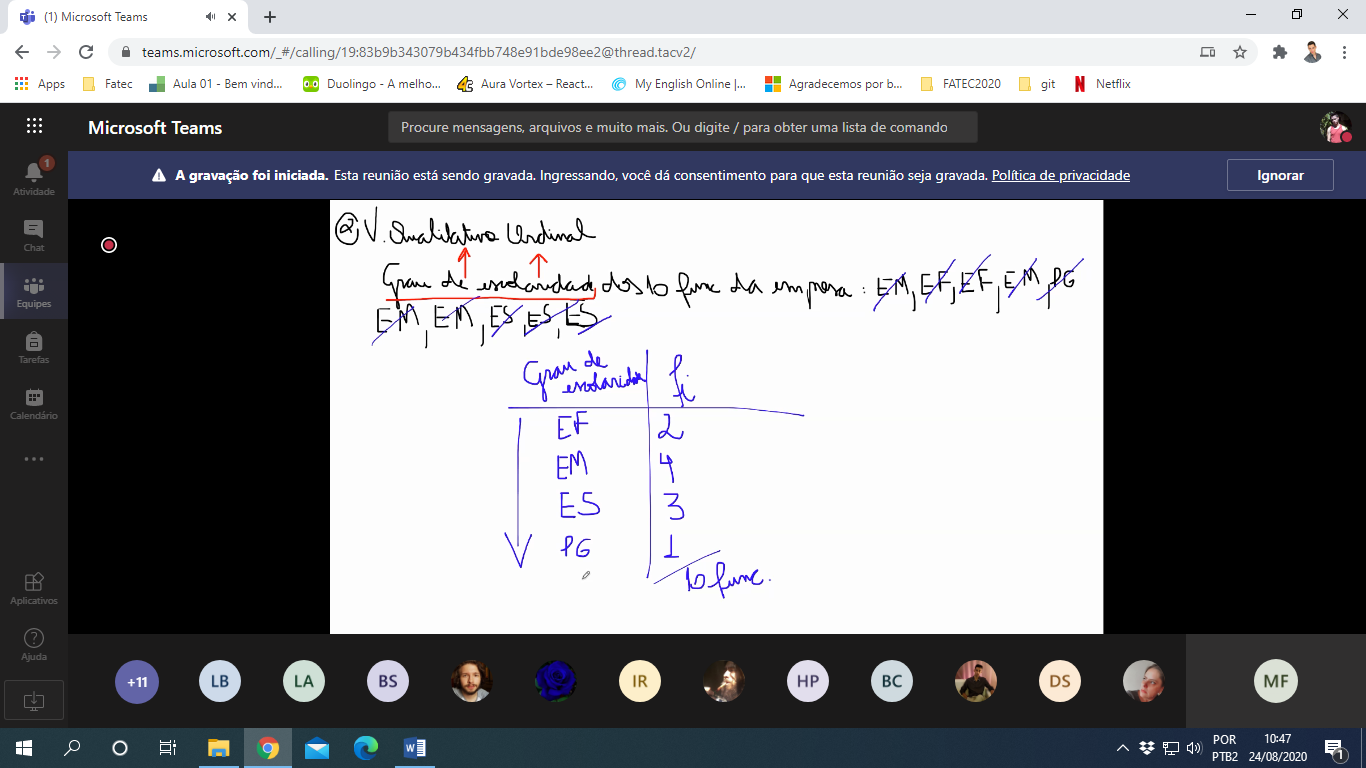 (1) Microsoft Teams
teams.microsoft.com/_#/calling/19:83b9b343079b434fbb748e91bde98ee2@thread.tacv2/
Apps Fatec Aula 01 - Bem vind... Duolingo - A melho... Aura Vortex – React... My English Online |... Agradecemos por b... FATEC2020 git Netflix
Microsoft Teams
Procure mensagens, arquivos e muito mais. Ou digite / para obter uma lista de comando
A gravação foi iniciada. Esta reunião está sendo gravada. Ingressando, você dá consentimento para que esta reunião seja gravada. Política de privacidade
Ignorar
1
Atividade
Chat
Equipes
Tarefas
Calendário
Aplicativos
Ajuda
② V. Qualitativa Ordinal
Grau de escolaridade dos 10 func da empresa: EM, EF, EF, EM, PG
EM, EM, ES, ES, ES
Grau de escolaridade fi
EF 2
EM 4
ES 3
PG 1
10 func.
+11 LB LA BS IR HP BC DS MF
POR 10:47
PTB2 24/08/2020 1